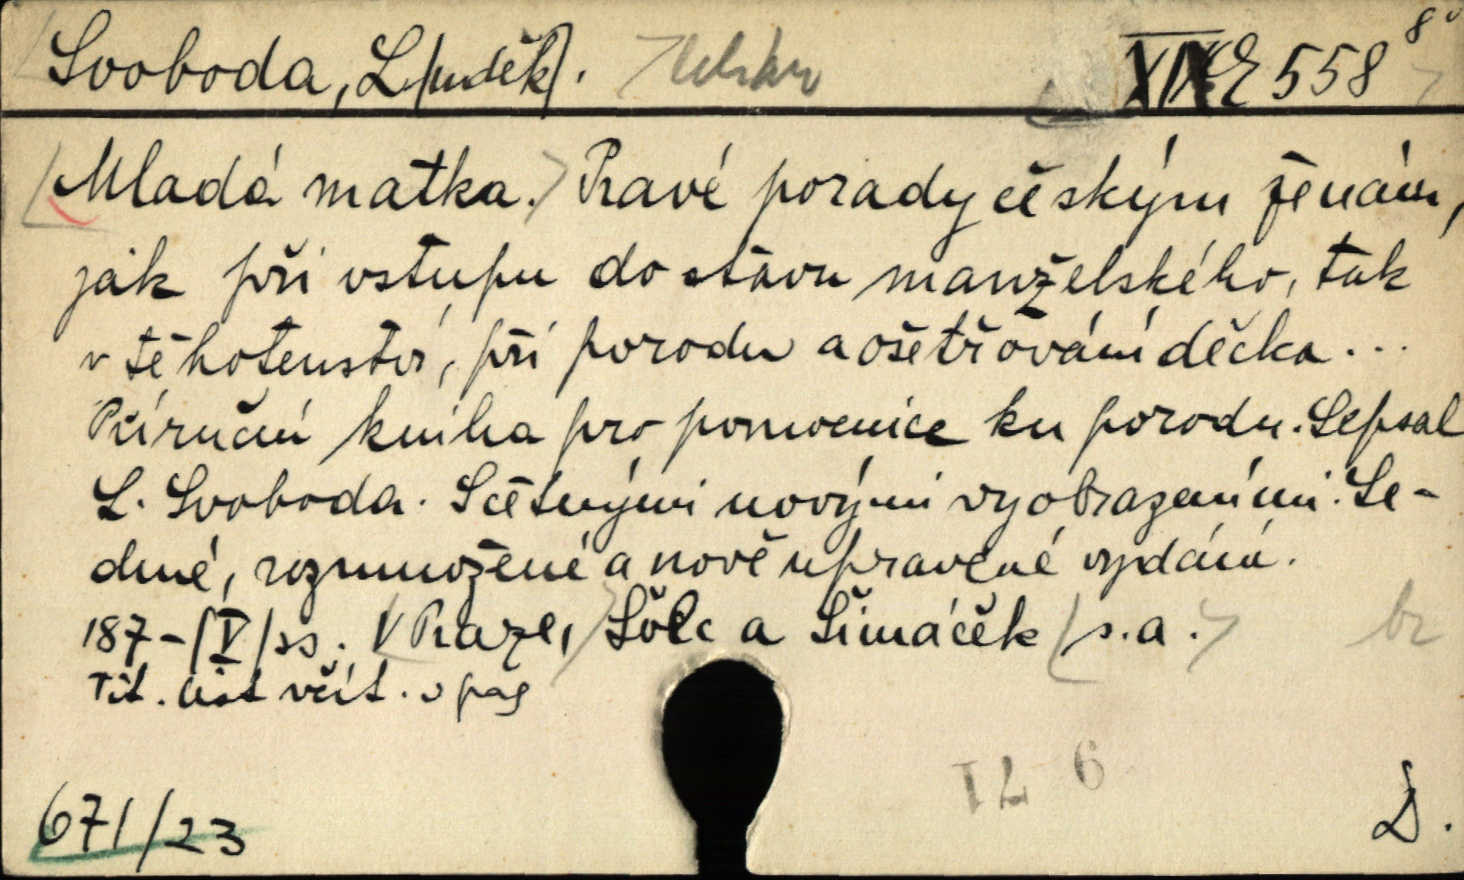 Svoboda, L/uděk/. lékař XIX E 558 8°
Mladá matka. Pravé porady českým ženám,
jak při vstupu do stavu manželského, tak
v těhotenství, při porodu a ošetřování děcka...
Příruční kniha pro pomocnice ku porodu. Sepsal
L. Svoboda. S četnými novými vyobrazeními. Se-
dmé, rozmnožené a nově upravené vydání.
187-/V/ss. V Praze, Šolc a Šimáček s.a. br
Tit. list včít. v pag
671/23 D.